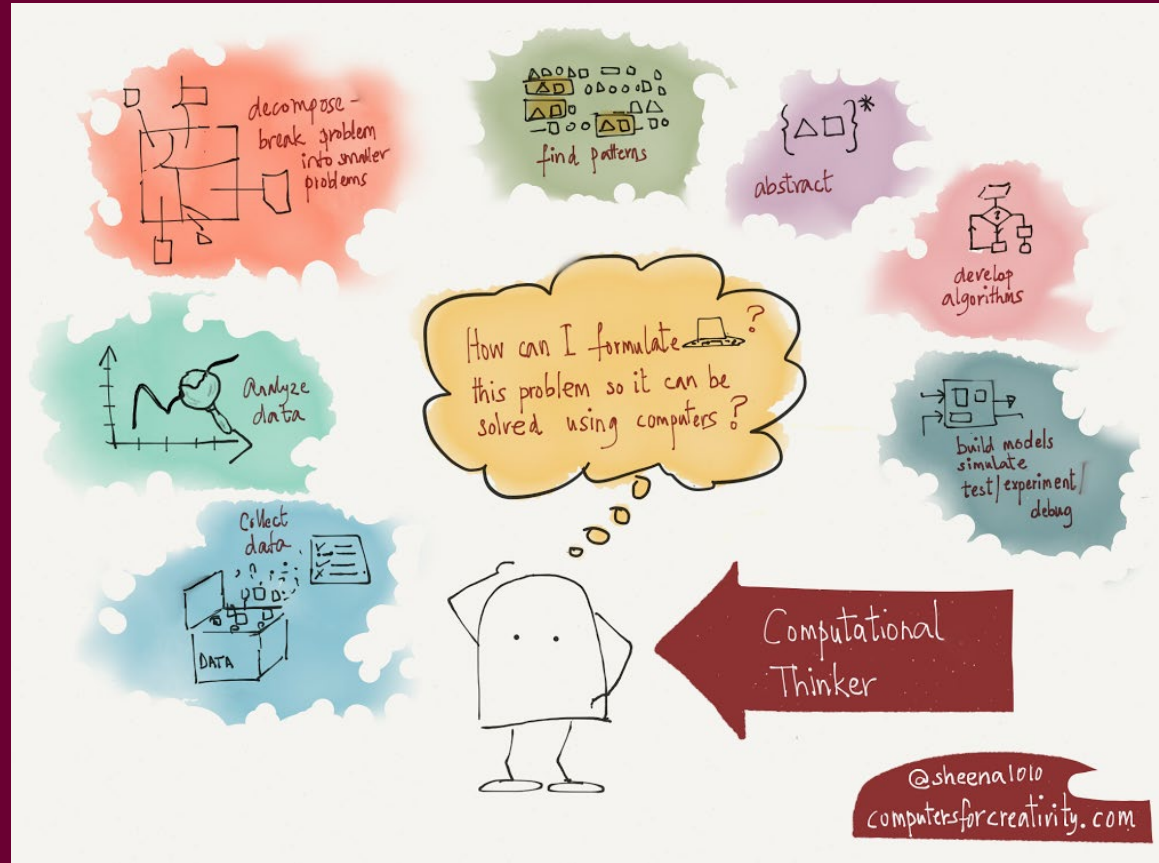 decompose -
break problem
into smaller
problems
find patterns
{△□}*
abstract
?
develop
algorithms
Analyze
data
How can I formulate ?
this problem so it can be
solved using computers?
build models
simulate
test/experiment/
debug
Collect
data
DATA
Computational
Thinker
@sheena1010
computersforcreativity.com